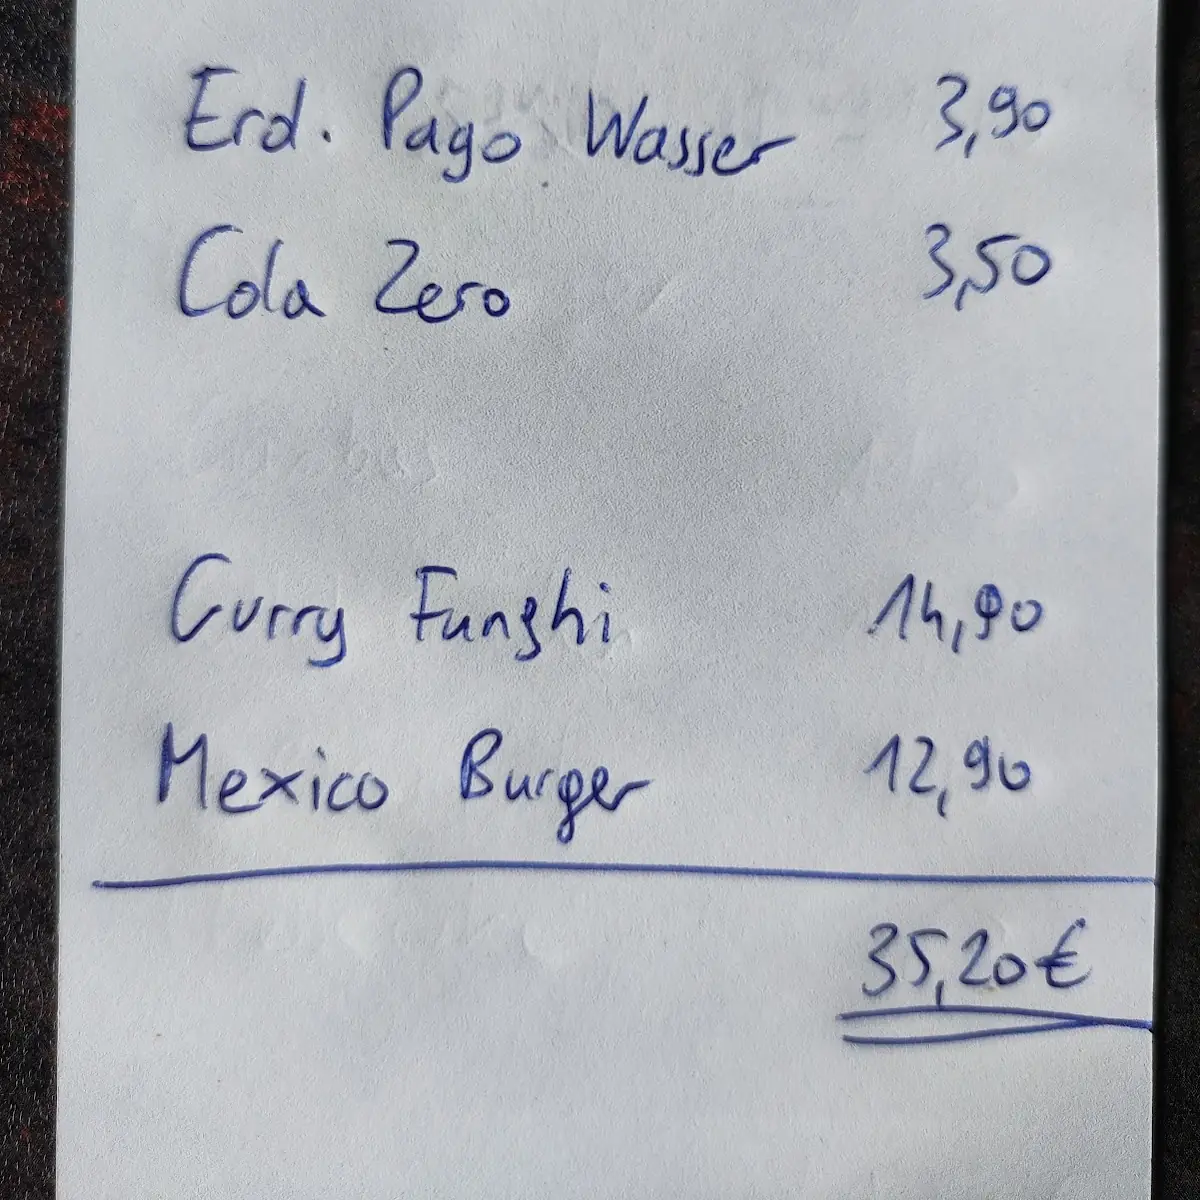 Erd. Pago Wasser 3,90
Cola Zero 3,50
Curry Funghi 14,90
Mexico Burger 12,90
35,20€